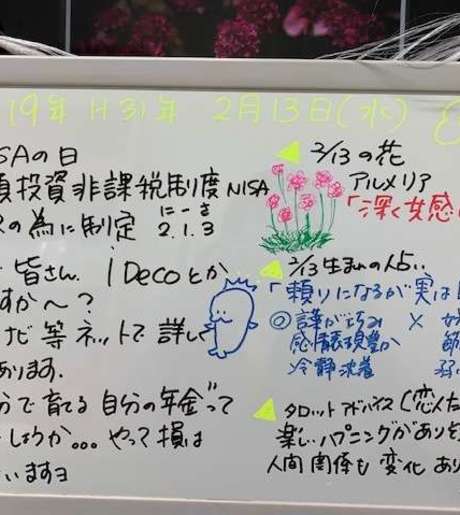 19年 H31年 2月13日(水)
SAの日
投資非課税制度 NISA
の為に制定 2.1.3
にーさ
皆さん、iDecoとか
すか〜?
など等ネットで詳しく
あります。
分で育てる自分の年金”って
しょうか...やって損は
いますョ
2/13の花
アルメリア
「深く
2/13生まれの人占い
「頼りになるが実は
◎謙が巧み ×
感情表現豊か
冷静沈着
タロットアドバイス(恋人た
楽しいハプニングがありそ
人間関係も変化あり